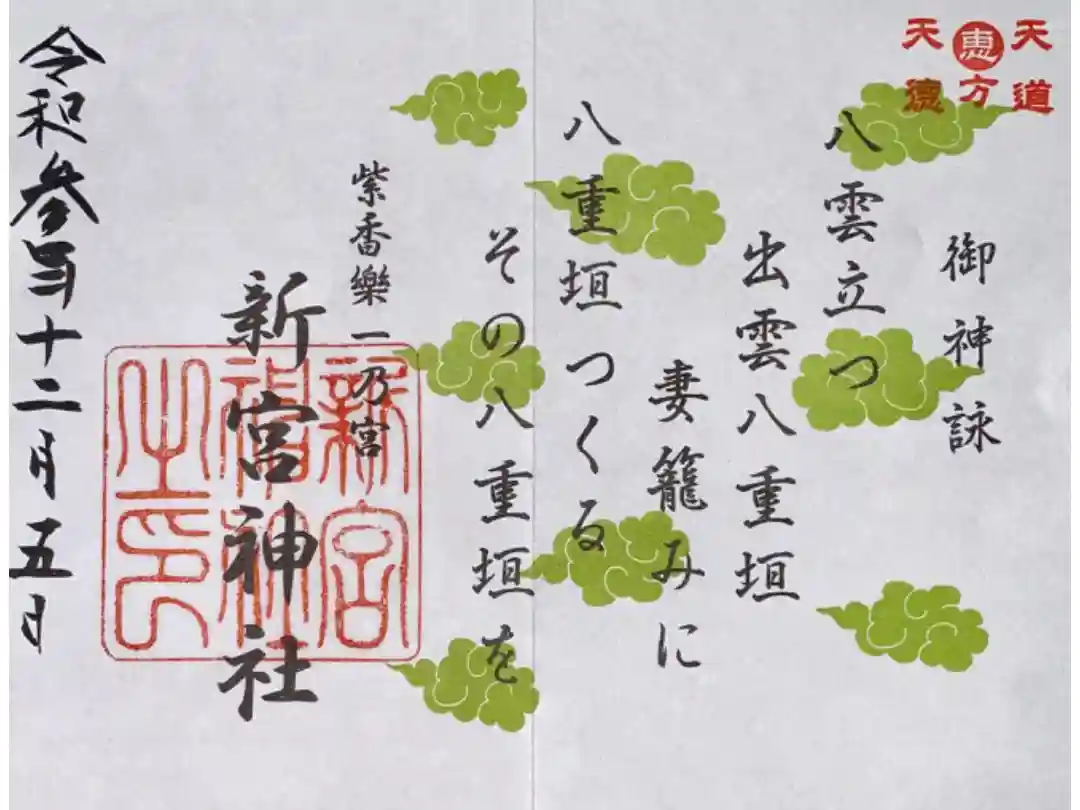 天道
恵方
天德
御神詠
八雲立つ
出雲八重垣
妻籠みに
八重垣つくる
その八重垣を
紫香樂一乃宮
新宮神社
新宮神社之印
令和参年十二月五日